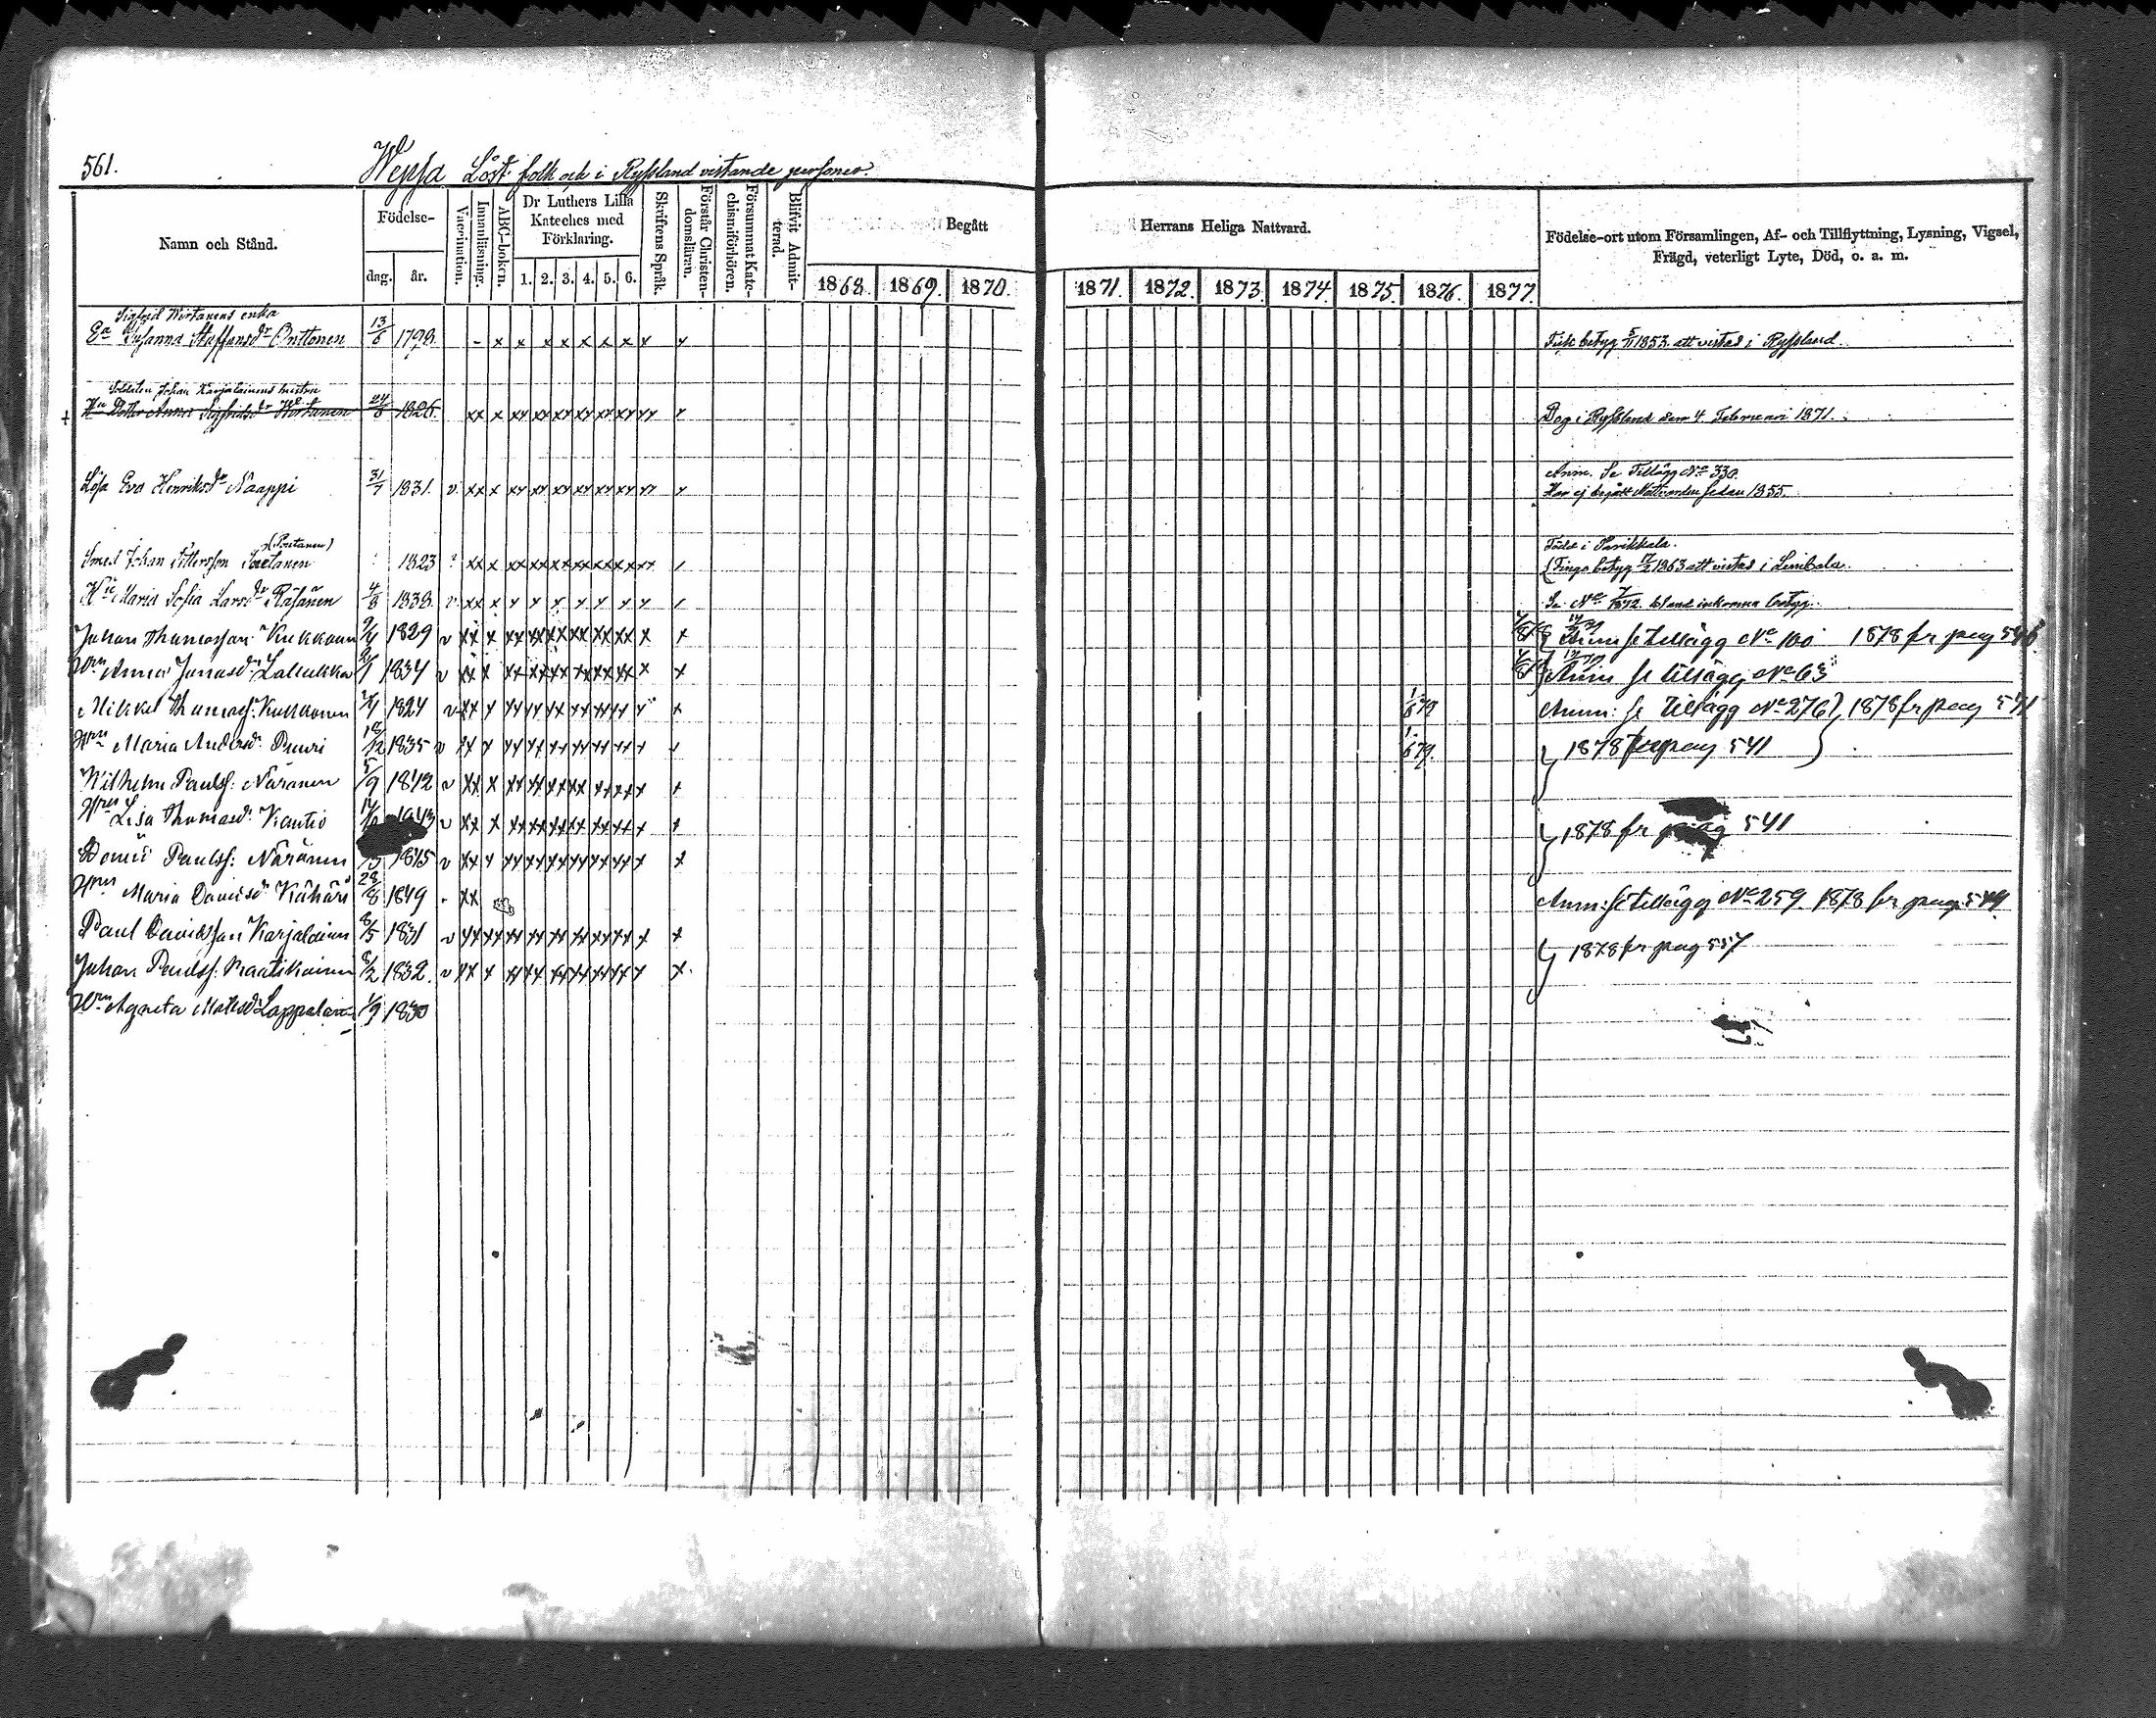 561.
Wepsa Löst folk och i Ryssland vistande personer.
Namn och Stånd.
Födelse-
dag. år.
Vaccination.
Innanläsning.
ABC-boken.
Dr Luthers Lilla Kateches med Förklaring.
1. 2. 3. 4. 5. 6.
Skriftens Språk.
Förstår Christendomsläran.
Försummat Katechismiförhören.
Blifvit Admitterad.
Begått Herrans Heliga Nattvard.
1868. 1869. 1870. 1871. 1872. 1873. 1874. 1875. 1876. 1877.
Födelse-ort utom Församlingen, Af- och Tillflyttning, Lysning, Vigsel,
Frägd, veterligt Lyte, Död, o. a. m.
Sigfrid Wirtanens enka
Ea Susanna Staffansdr Onttonen 13/6 1798. - x x x x x x x x x Fick betyg 5/11 1853. att vistas i Ryssland.
Soldaten Johan Karjalainens hustru
Anna Sigfridsdr Wirtanen 24/8 1826. xx x xx xx xx xx xx xx xx x Dog i Ryssland den 4. Februari 1871.
Anm. Se Tillägg No 330.
Lösa Eva Henriksdr Naappi 31/7 1831. v. xx x xx xx xx xx xx xx xx x Har ej begått Nattvarden sedan 1855.
Född i Parikkala.
Smed Johan 1823 xx x xx xx xx xx xx xx betyg 1863 att vistas i
Maria Sofia Larsdr Räsänen 4/8 1838. v. xx x x x x x x x x Se No 7/1872. bland inkomna betyg.
Johan Thomasson Kukkonen 9/4 1829 v xx x xx xx xx xx xx xx x x Anm se tillägg No 100 1878 fr pag 546
Anna Jonasd. Lallukka 1834 v xx x xx xx xx xx xx xx x x Anm se tillägg No 63
Mikkel Thomass: Kukkonen 1824 v xx x xx xx xx xx xx xx x x 1/6 79 Anm: se tillägg No 276 1878 fr pag 541
Maria Andersd. Puuri 18/12 1835 v xx x xx xx xx xx xx xx x x 1/6 79. 1878 fr pag 541
Wilhelm Paulss: Näränen 5/9 1842 v xx x xx xx xx xx xx xx x x
Lisa Thomasd. Kautio v xx x xx xx xx xx xx xx x x 1878 fr pag 541
Paulss: Näränen 1845 v xx x xx xx xx xx xx xx x x
Maria Davidsd. Kähäri 28/8 1849 xx Anm: se tillägg No 259. 1878 fr pag. 549
Paul Davidsson Karjalainen 8/5 1831 v xx xx xx xx xx xx xx xx x x 1878 fr pag 557
Johan Paulss: Raatikainen 8/2 1832. v xx x xx xx xx xx xx xx x x
Agneta Matsd. Lappalain 1/9 1830